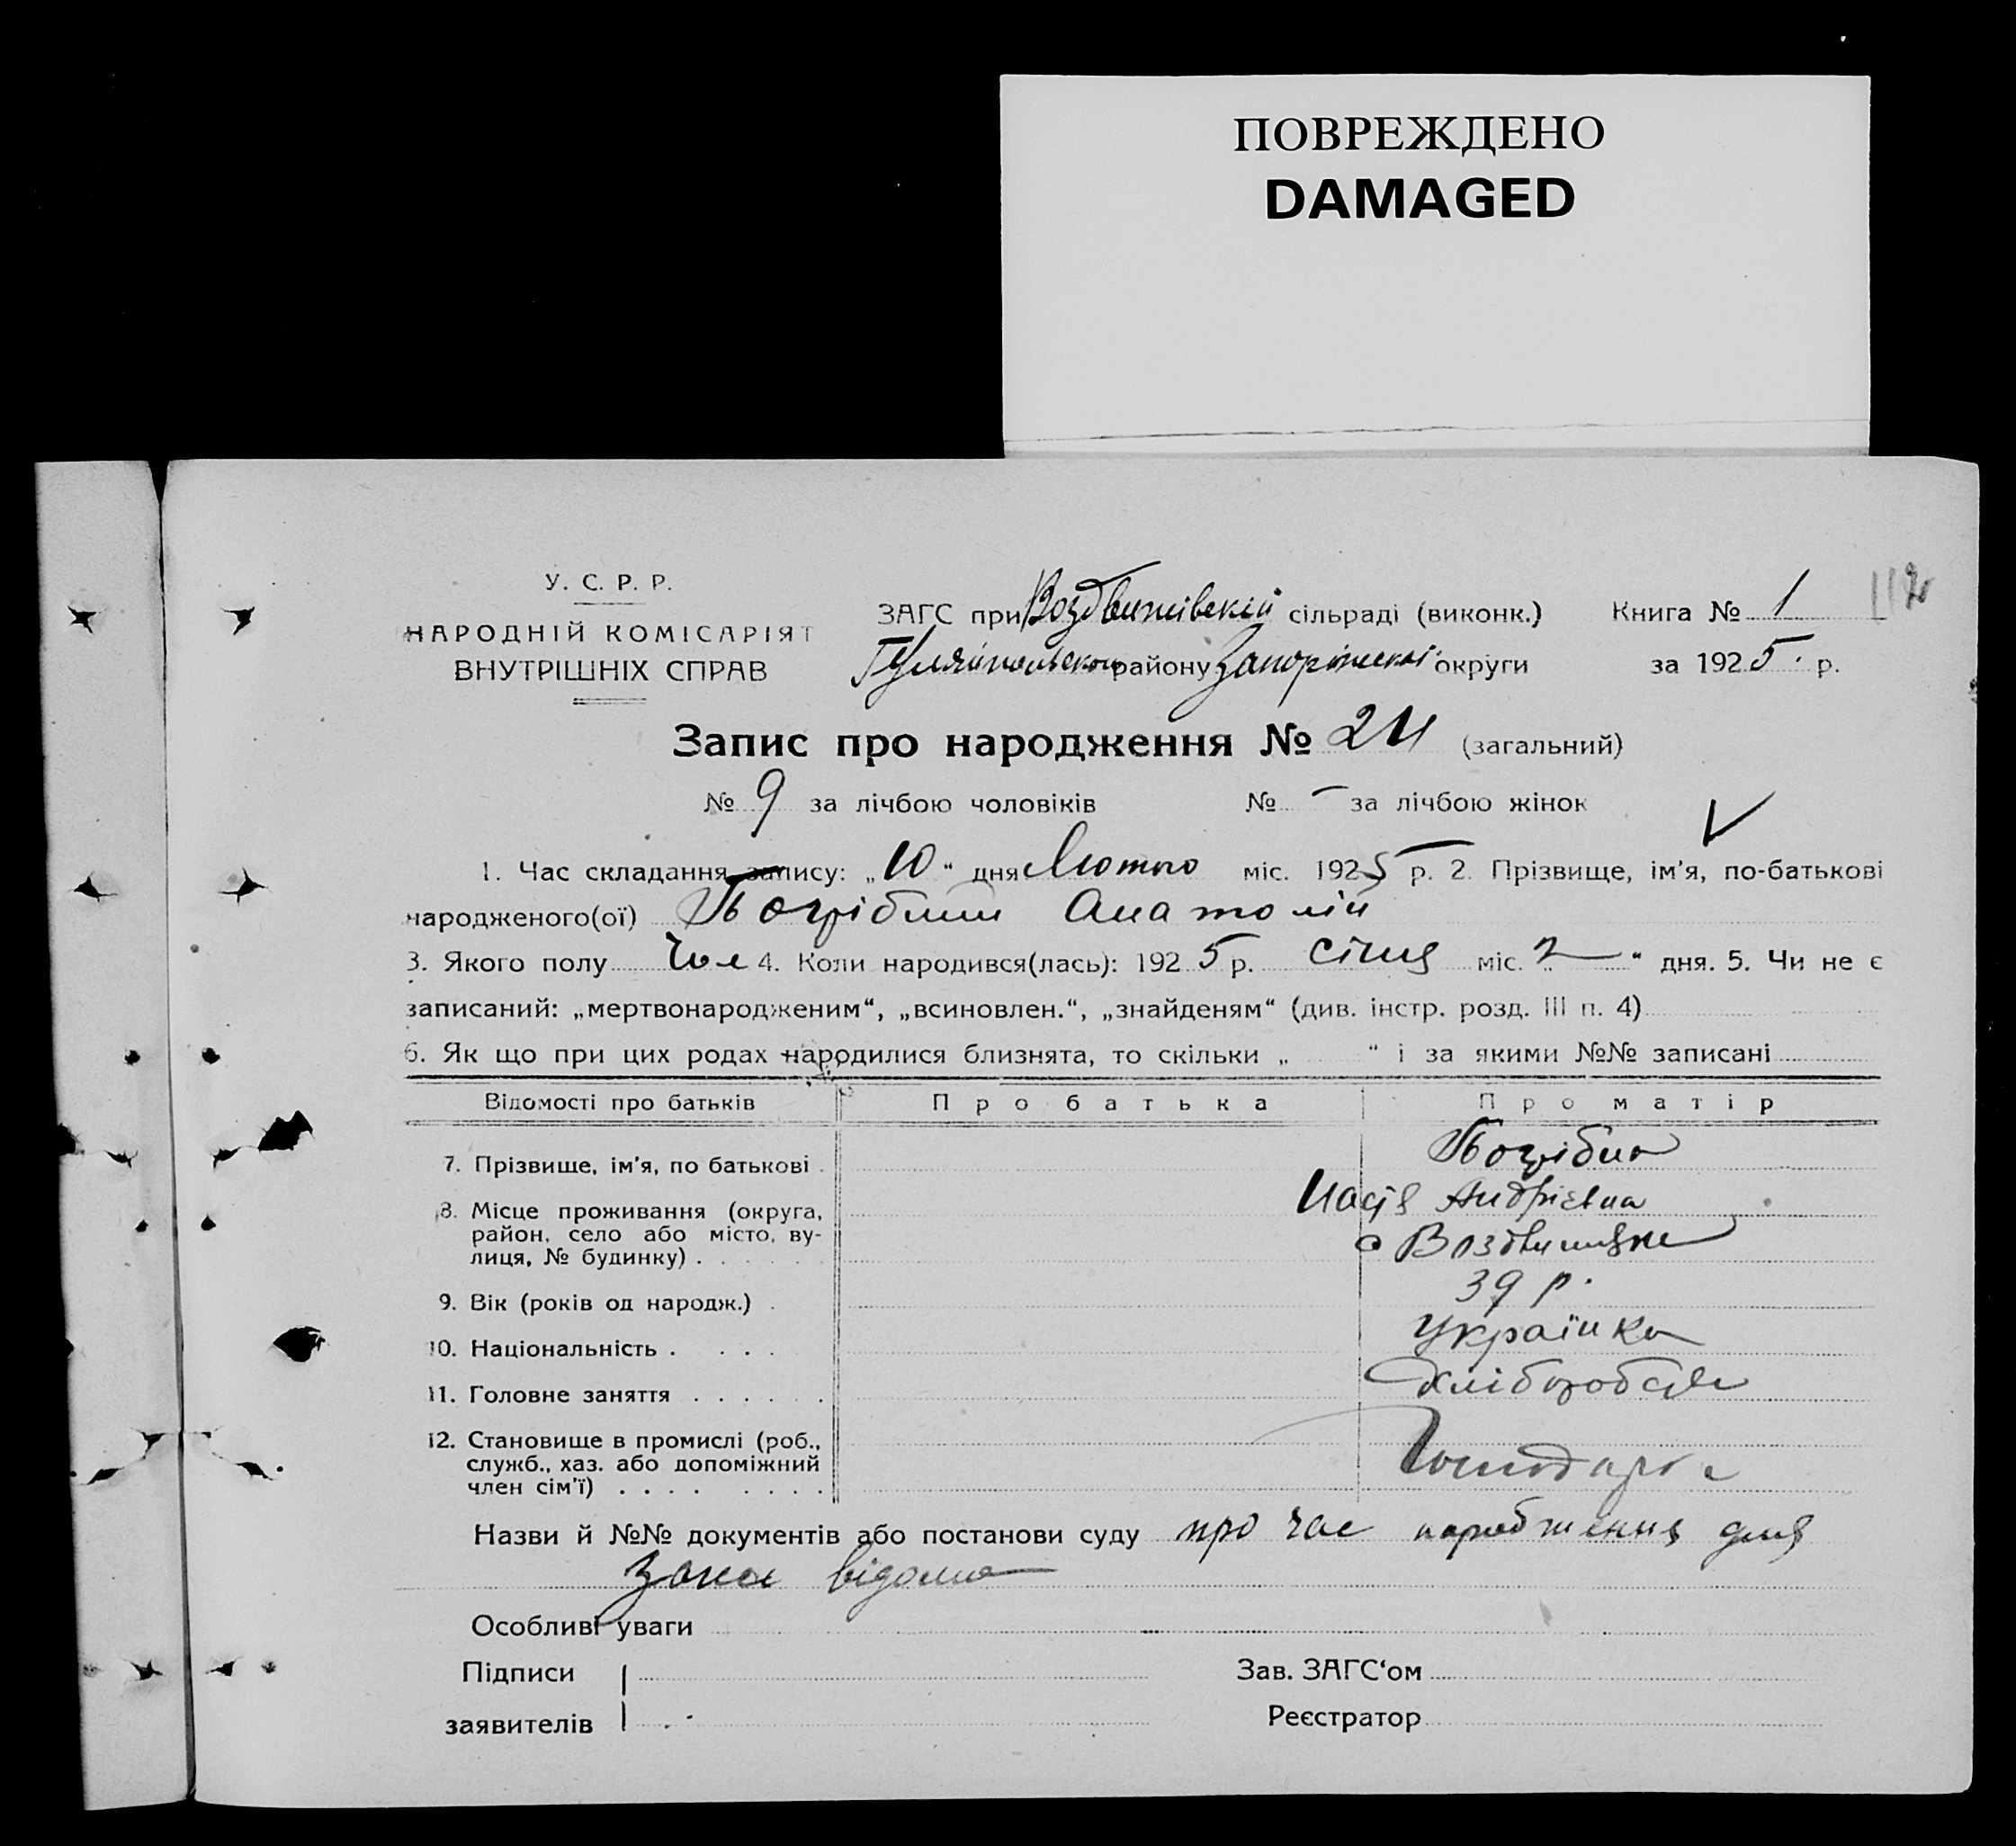 ПОВРЕЖДЕНО
DAMAGED
У. С. Р. Р.
НАРОДНІЙ КОМІСАРІЯТ
ВНУТРІШНІХ СПРАВ
ЗАГС при Воздвижівській сільраді (виконк.) Книга № 1
Гуляйпольского району Запоріжської округи за 1925 р.
Запис про народження № 24 (загальний)
№ 9 за лічбою чоловіків № – за лічбою жінок
1. Час складання запису: „10“ дня Лютого міс. 1925 р. 2. Прізвище, ім’я, по-батькові
народженого(ої) Погрібний Анатолій
3. Якого полу Чол 4. Коли народився(лась): 1925 р. січня міс. „2“ дня. 5. Чи не є
записаний: „мертвонародженим“, „всиновлен.“, „знайденям“ (див. інстр. розд. III п. 4)
6. Як що при цих родах народилися близнята, то скільки „ “ і за якими №№ записані
Відомості про батьків Про батька Про матір
7. Прізвище, ім’я, по батькові . Погрібна
Андрієвна
8. Місце проживання (округа,
район, село або місто, ву-
лиця, № будинку) . . . . . . с Воздвижівка
9. Вік (років од народж.) . 39 р.
10. Національність . . . . Українка
11. Головне заняття . . . . . . Хліборобств
12. Становище в промислі (роб.,
служб., хаз. або допоміжний
член сім’ї) . . . . . . . . Господарка
Назви й №№ документів або постанови суду про час народження
відома
Особливі уваги
Підписи
заявителів
Зав. ЗАГС‘ом
Реєстратор